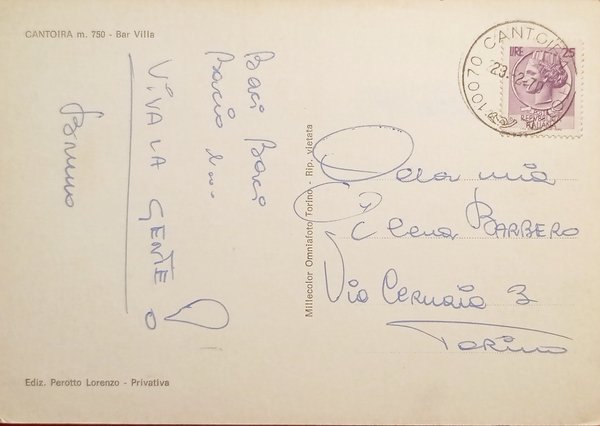 CANTOIRA m. 750 - Bar Villa
Baci Baci
VIVA LA GENTE!
Bruno
Ediz. Perotto Lorenzo - Privativa
Millecolor Omniafoto Torino - Rip. vietata
10070 CANTOIRA
LIRE 25
REPUBBLICA
ITALIANA
mia
Elena BARBERO
Via Cernaia 3
Torino